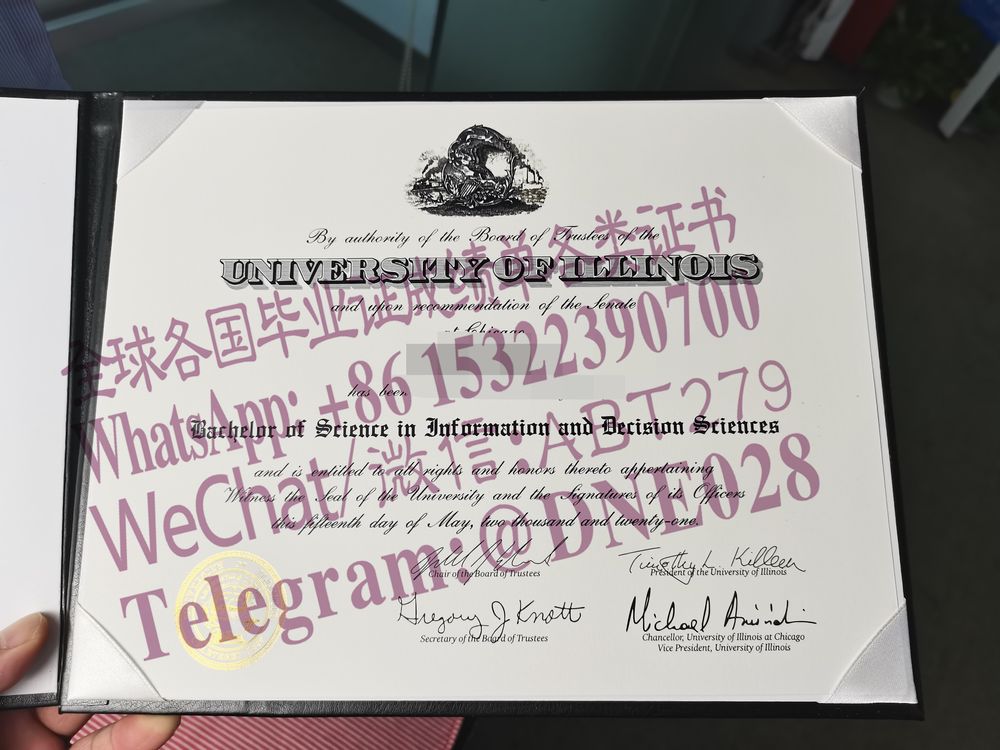 By authority of the Board of Trustees of the
UNIVERSITY OF ILLINOIS
and upon recommendation of the Senate
at Chicago
has been
Bachelor of Science in Information and Decision Sciences
and is entitled to all rights and honors thereto appertaining
Witness the Seal of the University and the Signatures of its Officers
this fifteenth day of May, two thousand and twenty-one.
Chair of the Board of Trustees
Timothy L. Killeen
President of the University of Illinois
Gregory J Knott
Secretary of the Board of Trustees
Michael
Chancellor, University of Illinois at Chicago
Vice President, University of Illinois
全球各国毕业证成绩单各类证书
WhatsApp: +86 15322390700
WeChat/微信:ABT279
Telegram:@DNE028